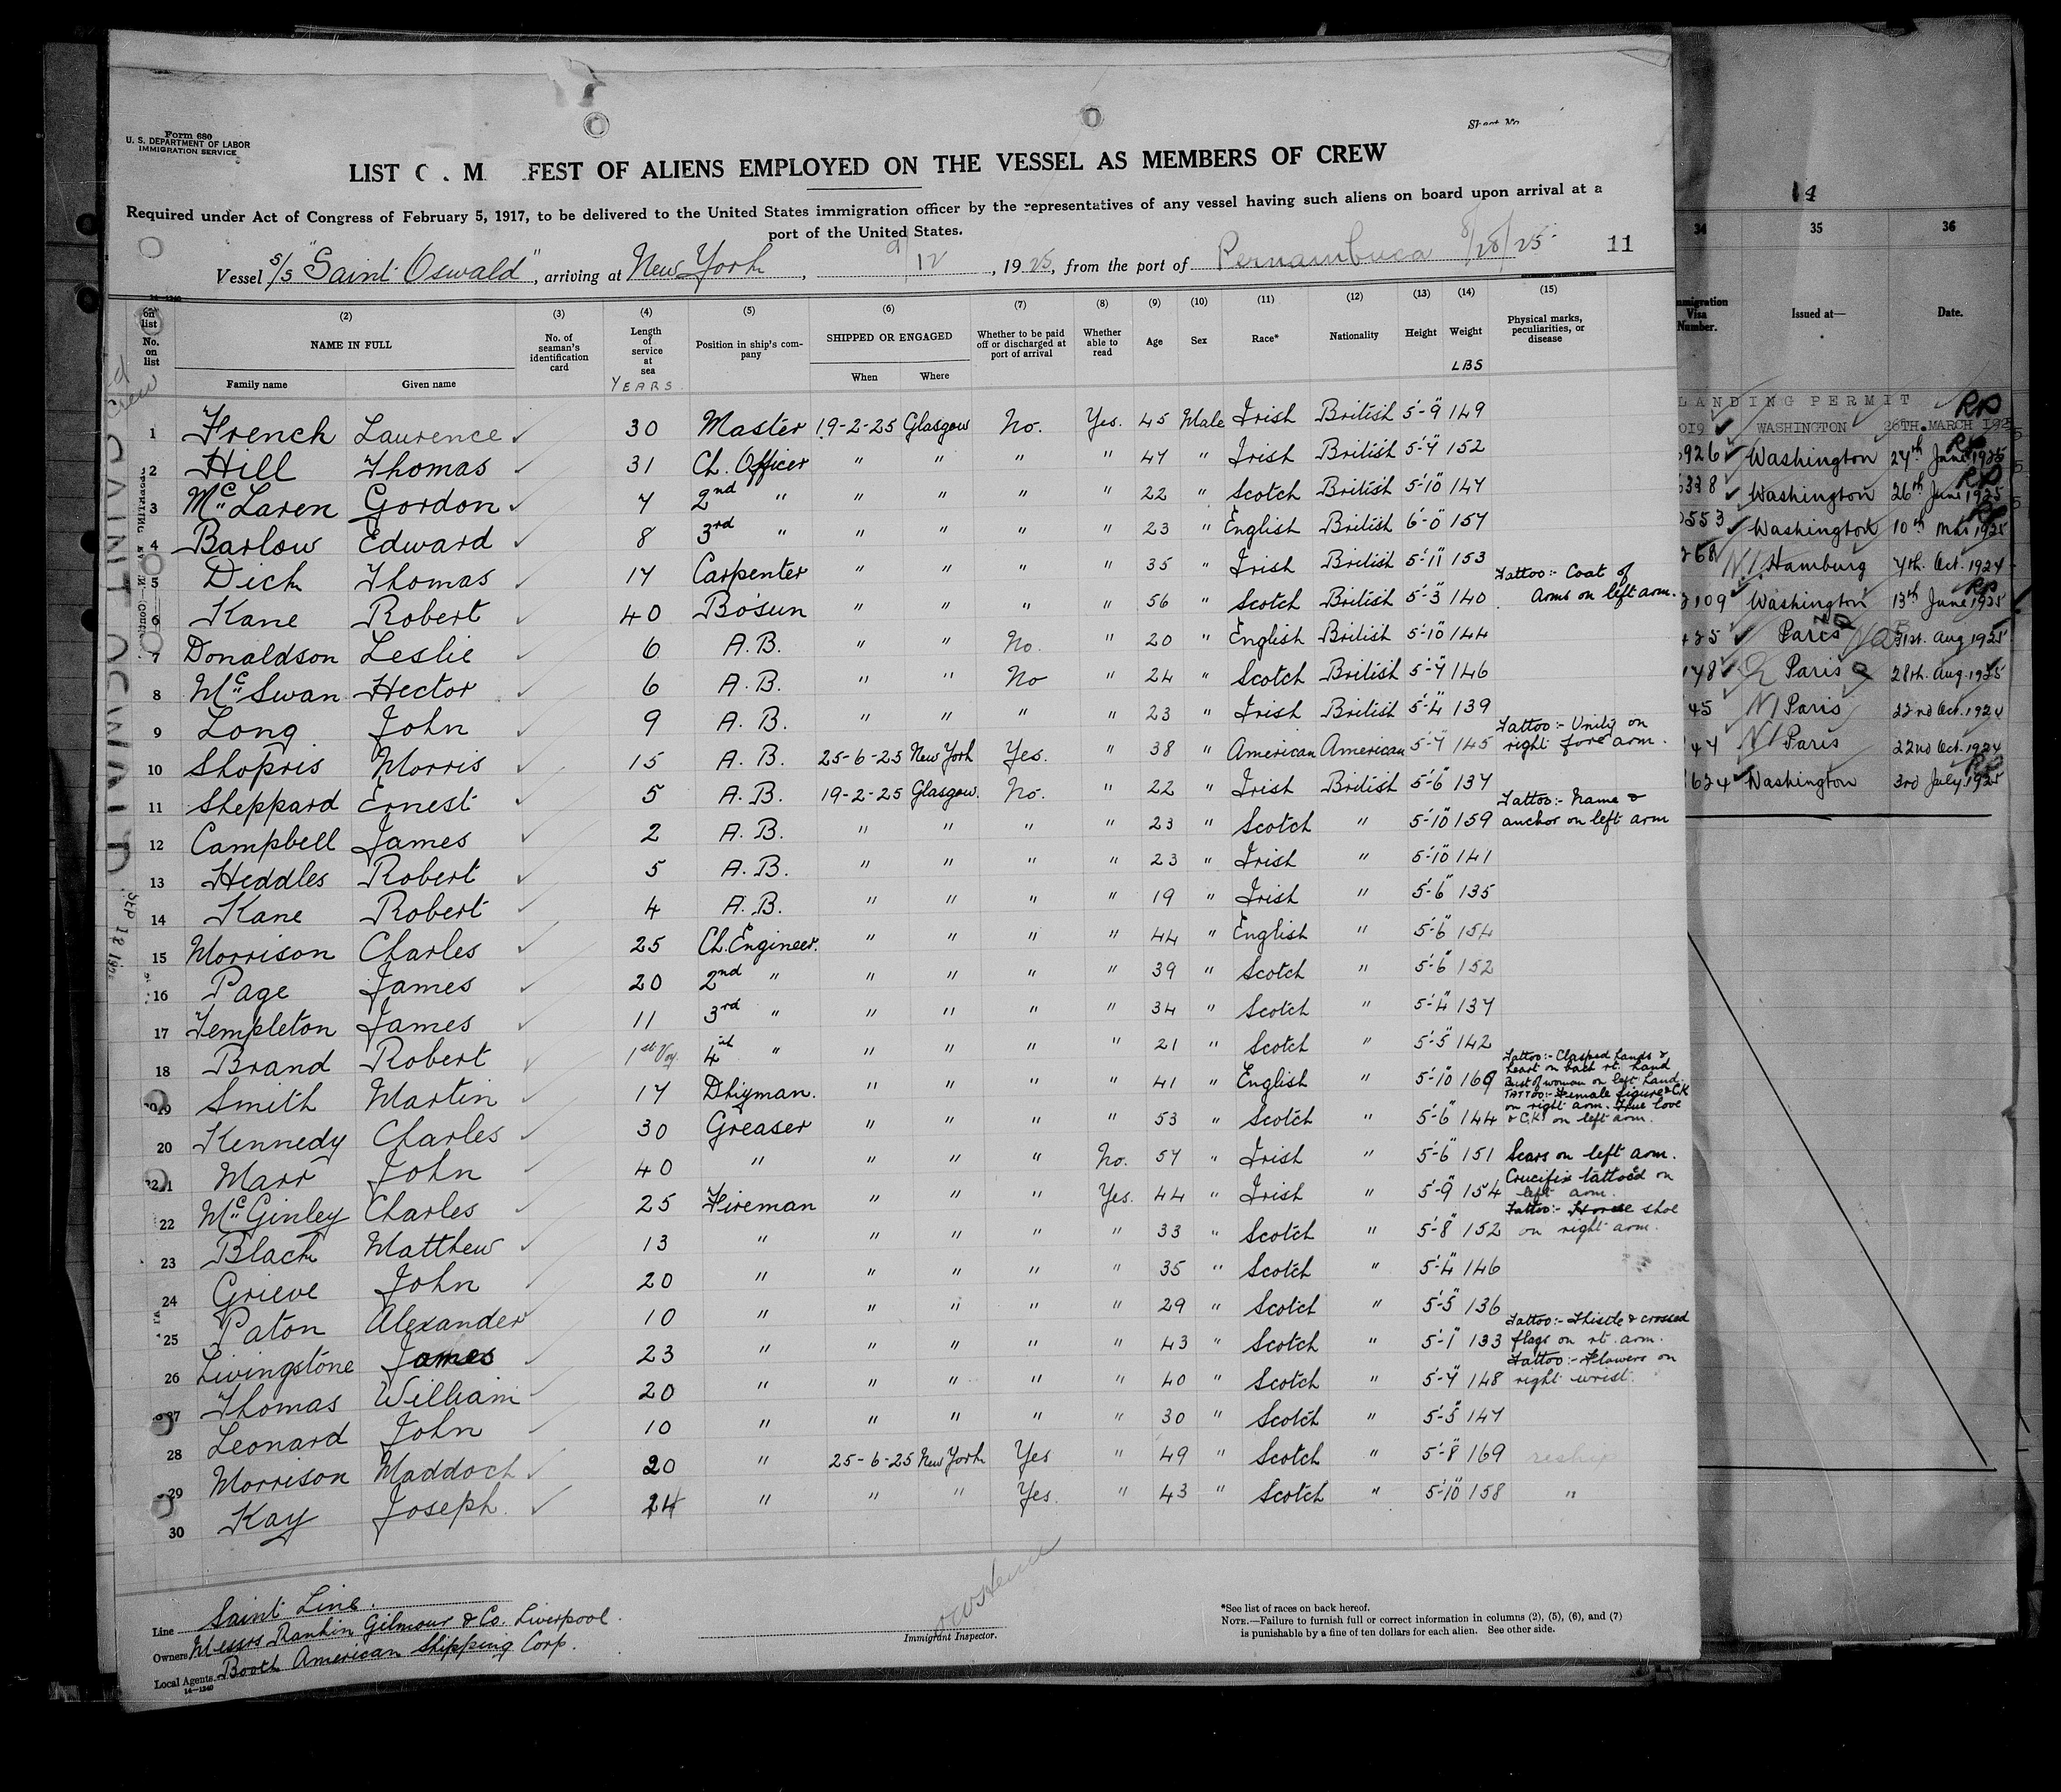 Form 680
U. S. DEPARTMENT OF LABOR
IMMIGRATION SERVICE
LIST M FEST OF ALIENS EMPLOYED ON THE VESSEL AS MEMBERS OF CREW
Required under Act of Congress of February 5, 1917, to be delivered to the United States immigration officer by the representatives of any vessel having such aliens on board upon arrival at a
port of the United States.
Vessel S/S "Saint Oswald", arriving at New York, 9/12, 1925, from the port of Pernambuca 8/28/25 11
(2) (3) (4) (5) (6) (7) (8) (9) (10) (11) (12) (13) (14) (15)
No. on list NAME IN FULL Family name Given name No. of seaman's identification card Length of service at sea YEARS Position in ship's company SHIPPED OR ENGAGED When Where Whether to be paid off or discharged at port of arrival Whether able to read Age Sex Race* Nationality Height Weight LBS Physical marks, peculiarities, or disease
1 French Laurence ✓ 30 Master 19-2-25 Glasgow No. Yes. 45 Male Irish British 5'-9" 149
2 Hill Thomas ✓ 31 Ch. Officer " " " " 47 " Irish British 5'-7" 152
3 McLaren Gordon ✓ 7 2nd " " " " " 22 " Scotch British 5'-10" 147
4 Barlow Edward ✓ 8 3rd " " " " " 23 " English British 6'-0" 157
5 Dick Thomas ✓ 17 Carpenter " " " " 35 " Irish British 5'-11" 153
6 Kane Robert ✓ 40 Bosun " " " " 56 " Scotch British 5'-3" 140 Tattoo:- Coat of Arms on left arm.
7 Donaldson Leslie ✓ 6 A.B. " " No. " 20 " English British 5'-10" 144
8 McSwan Hector ✓ 6 A.B. " " No " 24 " Scotch British 5'-7" 146
9 Long John ✓ 9 A.B. " " " " 23 " Irish British 5'-4" 139
10 Shopris Morris ✓ 15 A.B. 25-6-25 New York Yes. " 38 " American American 5'-7" 145 Tattoo:- Unity on right fore arm.
11 Sheppard Ernest ✓ 5 A.B. 19-2-25 Glasgow. No. " 22 " Irish British 5'-6" 137
12 Campbell James ✓ 2 A.B. " " " " 23 " Scotch " 5'-10" 159 Tattoo:- Name & anchor on left arm
13 Heddles Robert ✓ 5 A.B. " " " " 23 " Irish " 5'-10" 141
14 Kane Robert ✓ 4 A.B. " " " " 19 " Irish " 5'-6" 135
15 Morrison Charles ✓ 25 Ch. Engineer. " " " " 44 " English " 5'-6" 154
16 Page James ✓ 20 2nd " " " " " 39 " Scotch " 5'-6" 152
17 Templeton James ✓ 11 3rd " " " " " 34 " Scotch " 5'-4" 137
18 Brand Robert ✓ 1st Voy. 4th " " " " " 21 " Scotch " 5'-5" 142
19 Smith Martin ✓ 17 Dkyman. " " " " 41 " English " 5'-10" 169 Tattoo:- Clasped hands & heart on back rt. hand Bust of woman on left hand.
20 Kennedy Charles ✓ 30 Greaser " " " " 53 " Scotch " 5'-6" 144 TATTOO:- Female figure & C.K on right arm. True love & C.K on left arm.
21 Marr John ✓ 40 " " " " No. 57 " Irish " 5'-6" 151 Scars on left arm.
22 McGinley Charles ✓ 25 Fireman " " " Yes. 44 " Irish " 5'-9" 154 Crucifix tattooed on left arm.
23 Black Matthew ✓ 13 " " " " " 33 " Scotch " 5'-8" 152 Tattoo:- Horse shoe on right arm.
24 Grieve John ✓ 20 " " " " " 35 " Scotch " 5'-4" 146
25 Paton Alexander ✓ 10 " " " " " 29 " Scotch " 5'-5" 136
26 Livingstone James ✓ 23 " " " " " 43 " Scotch " 5'-1" 133 Tattoo:- Thistle & crossed flags on rt. arm.
27 Thomas William ✓ 20 " " " " " 40 " Scotch " 5'-7" 148 Tattoo:- Flowers on right wrist.
28 Leonard John ✓ 10 " " " " " 30 " Scotch " 5'-5" 147
29 Morrison Maddock ✓ 20 " 25-6-25 New York Yes " 49 " Scotch " 5'-8" 169 reship
30 Kay Joseph. ✓ 24 " " " Yes. " 43 " Scotch " 5'-10" 158 "
Line Saint Line.
Owners Messrs Rankin Gilmour & Co. Liverpool.
Local Agents Booth American Shipping Corp.
14-1240
Immigrant Inspector.
*See list of races on back hereof.
NOTE.—Failure to furnish full or correct information in columns (2), (5), (6), and (7)
is punishable by a fine of ten dollars for each alien. See other side.
SAINT OSWALD
34 35 36
Immigration Visa Number. Issued at— Date.
LANDING PERMIT RP
019 ✓ WASHINGTON 26TH. MARCH 1925
926 ✓ Washington 24th June 1925
328 ✓ Washington 26th June 1925
0553 ✓ Washington 10th Mar 1925
268 N/ Hamburg 7th. Oct. 1924
2109 ✓ Washington 13th June 1925
425 ✓ Paris 31st. Aug 1925
148 ✓ Paris 28th. Aug. 1925
45 N/ Paris 22nd Oct. 1924
47 N/ Paris 22nd Oct. 1924
624 ✓ Washington 3rd July 1925